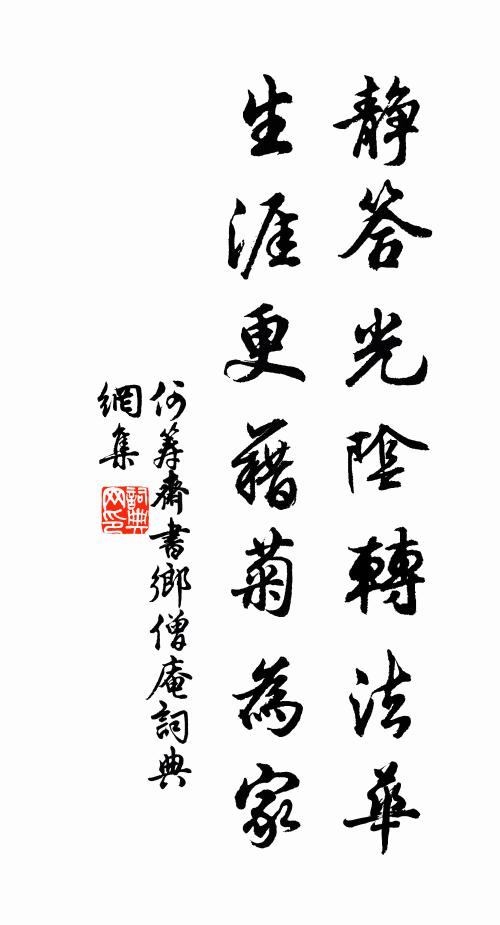 靜答光陰轉法華
生涯更藉菊為家
何筹齋書鄉僧庵詞典
網集
詞典
网